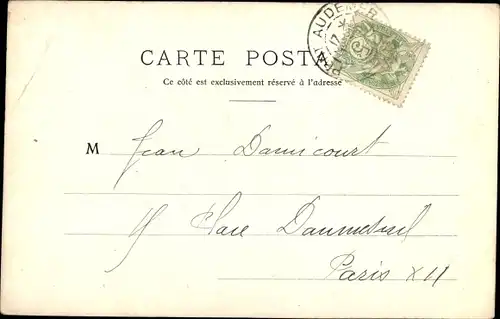 CARTE POSTALE
Ce côté est exclusivement réservé à l'adresse
PONT AUDEMER
M Jean Damicourt
Place Daumesnil
Paris XII